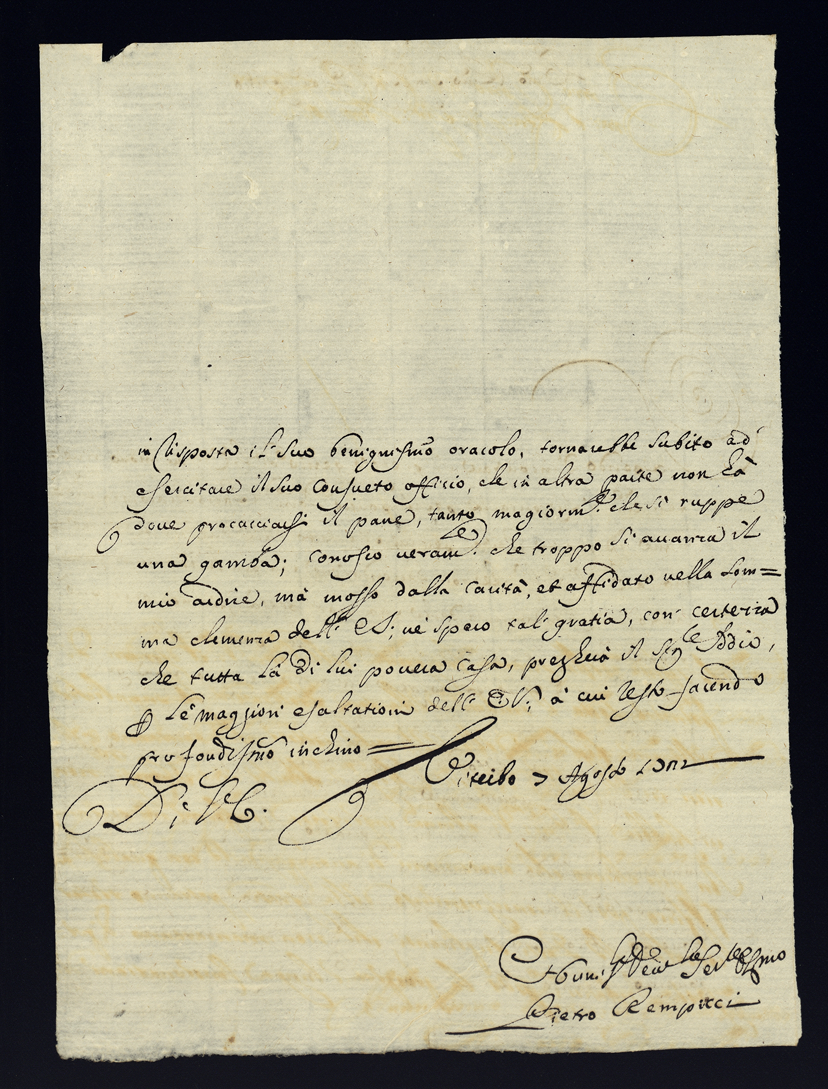 in risposta il suo benignissmo oracolo, tornarebbe subito ad
esercitare il suo consueto officio, che in altra parte non hà
dove procacciarsi il pane, tanto magiormte che si ruppe
una gamba; conosco veramte che troppo si avanza il
mio ardire, mà mosso dalla carità, et affidato nella som=
ma clemenza dell' E.S; ne spero tal' gratia, con' certezza
che tutta la di lui povera casa, pregherà il Sigre Iddio,
p le maggiori esaltationi dell' E.V; à cui resto facendo
profondissmo inchino =
Viterbo 7 Agosto
Di V.E.
Humilmo Devmo
Pietro